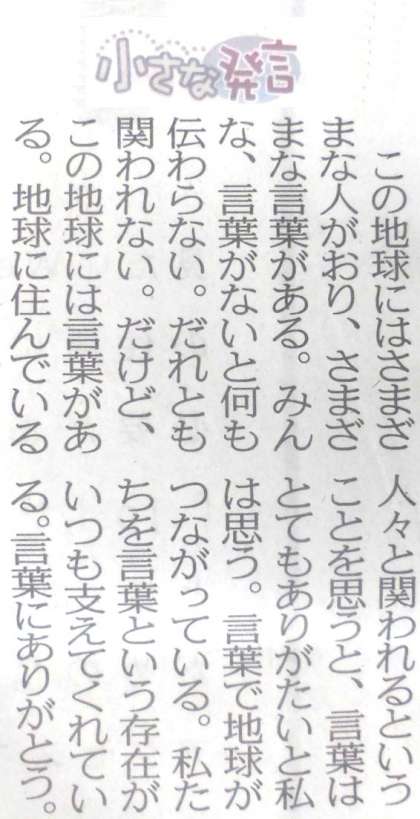 小さな発言
この地球にはさまざ
まな人がおり、さまざ
まな言葉がある。みん
な、言葉がないと何も
伝わらない。だれとも
関われない。だけど、
この地球には言葉があ
る。地球に住んでいる
人々と関われるという
ことを思うと、言葉は
とてもありがたいと私
は思う。言葉で地球が
つながっている。私た
ちを言葉という存在が
いつも支えてくれてい
る。言葉にありがとう。